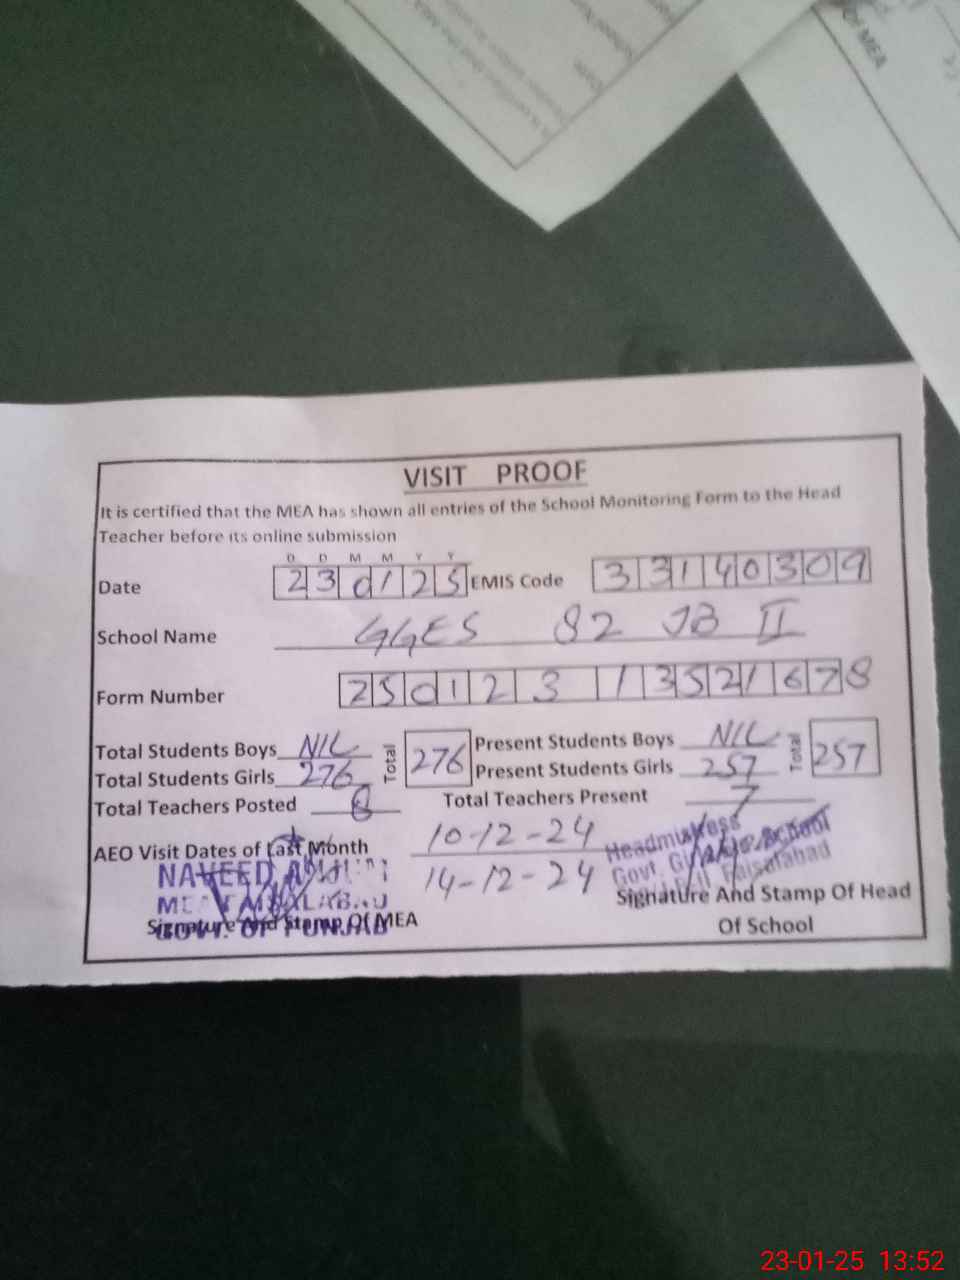 Of MEA
VISIT PROOF
It is certified that the MEA has shown all entries of the School Monitoring Form to the Head
Teacher before its online submission
D D M M Y Y
Date 230125 EMIS Code 33140309
School Name GGES 82 JB II
Form Number 25012313521678
Total Students Boys NIL Total 276 Present Students Boys NIL Total 257
Total Students Girls 276 Present Students Girls 257
Total Teachers Posted 8 Total Teachers Present 7
AEO Visit Dates of Last Month 10-12-24
14-12-24
Headmistress
Govt. School
Faisalabad
NAVEED
MEA FAISALABAD
GOVT. OF PUNJAB
Signature And Stamp Of MEA
Signature And Stamp Of Head
Of School
23-01-25 13:52